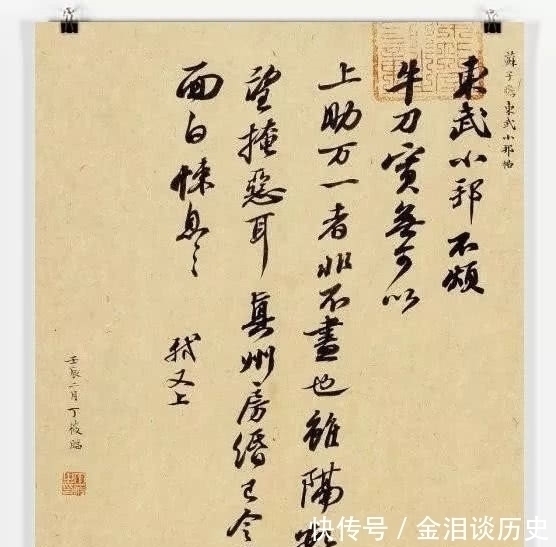 蘇子瞻東武小邦帖
東武小邦不煩
牛刀實無可以
上助万一者非不盡也雖隔
望掩惡耳真州房緡已令
面白悚息〻
軾又上
壬辰二月丁 臨
快传号 / 金泪谈历史